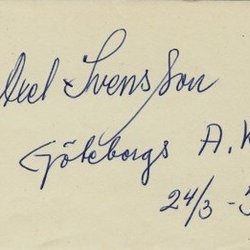 Axel Svensson
Göteborgs A. K
24/3 - 3